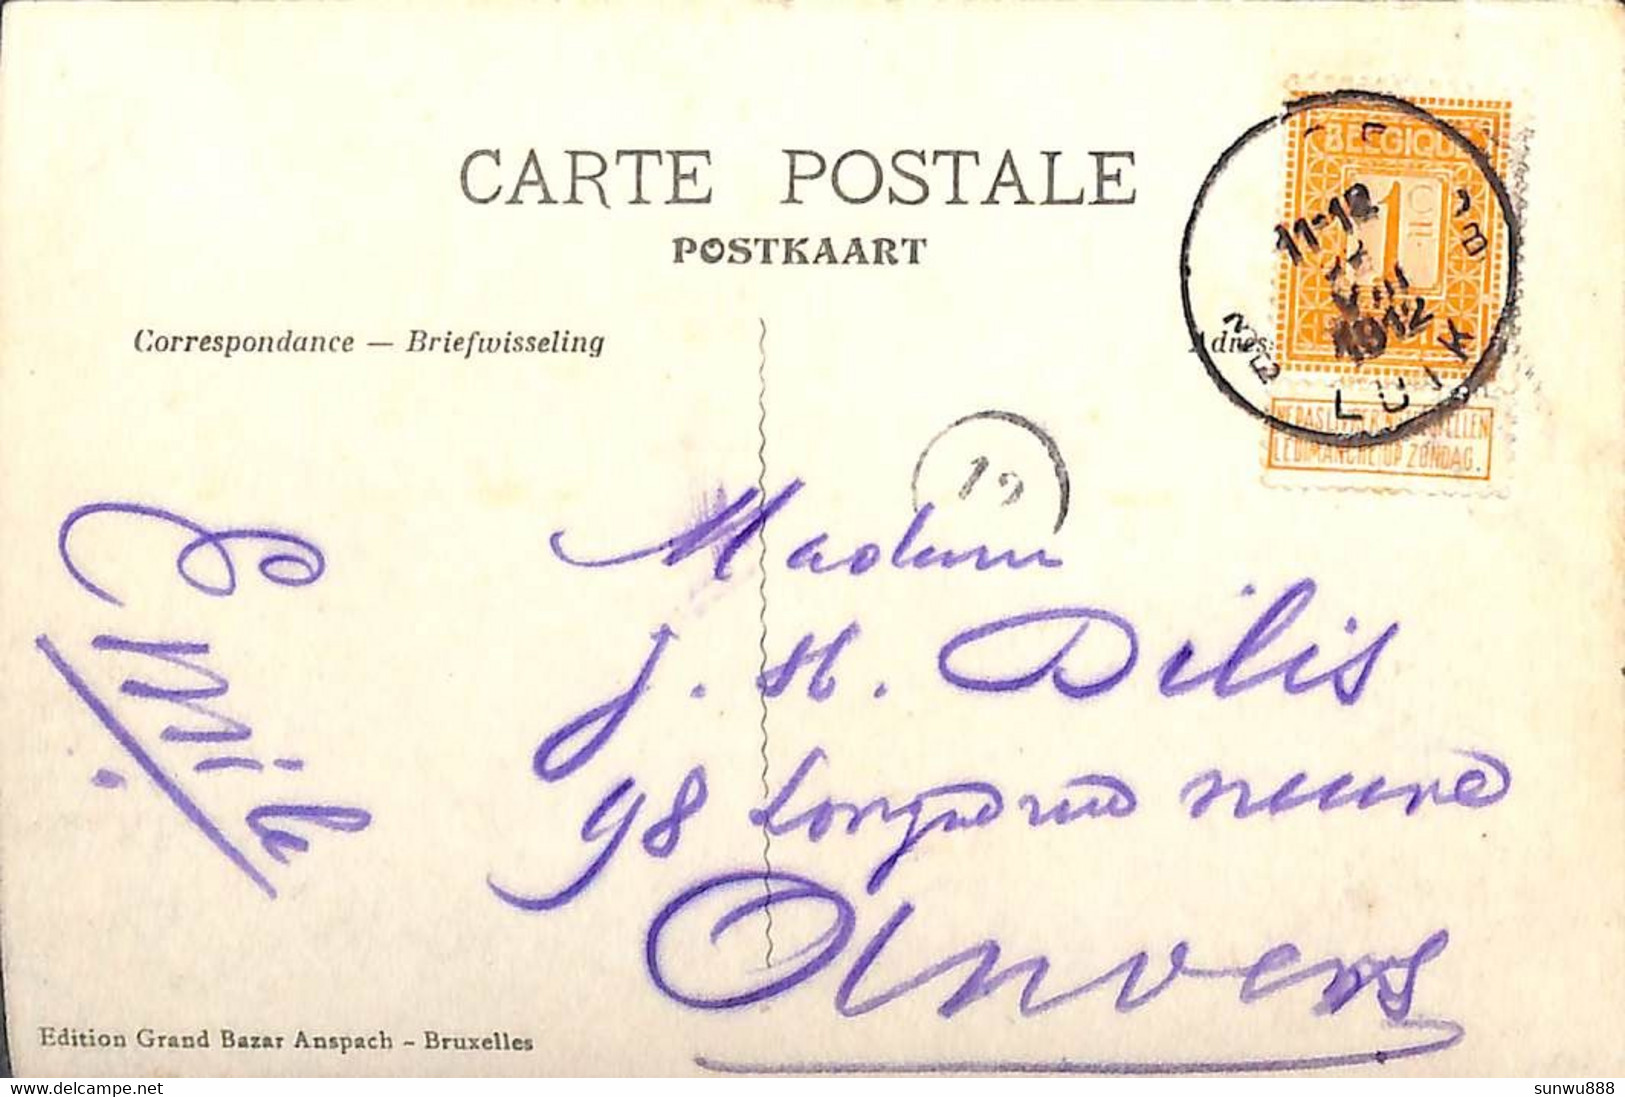 CARTE POSTALE
POSTKAART
Correspondance — Briefwisseling
Adres
BELGIQUE
1 C
11-12
VIII
1912
LUIK
1B
NE PAS LIVRER NIET BESTELLEN
LE DIMANCHE OP ZONDAG.
12
Madame
J. H. Dilis
98 Longue rue neuve
Anvers
Edition Grand Bazar Anspach - Bruxelles
www.delcampe.net
sunwu888